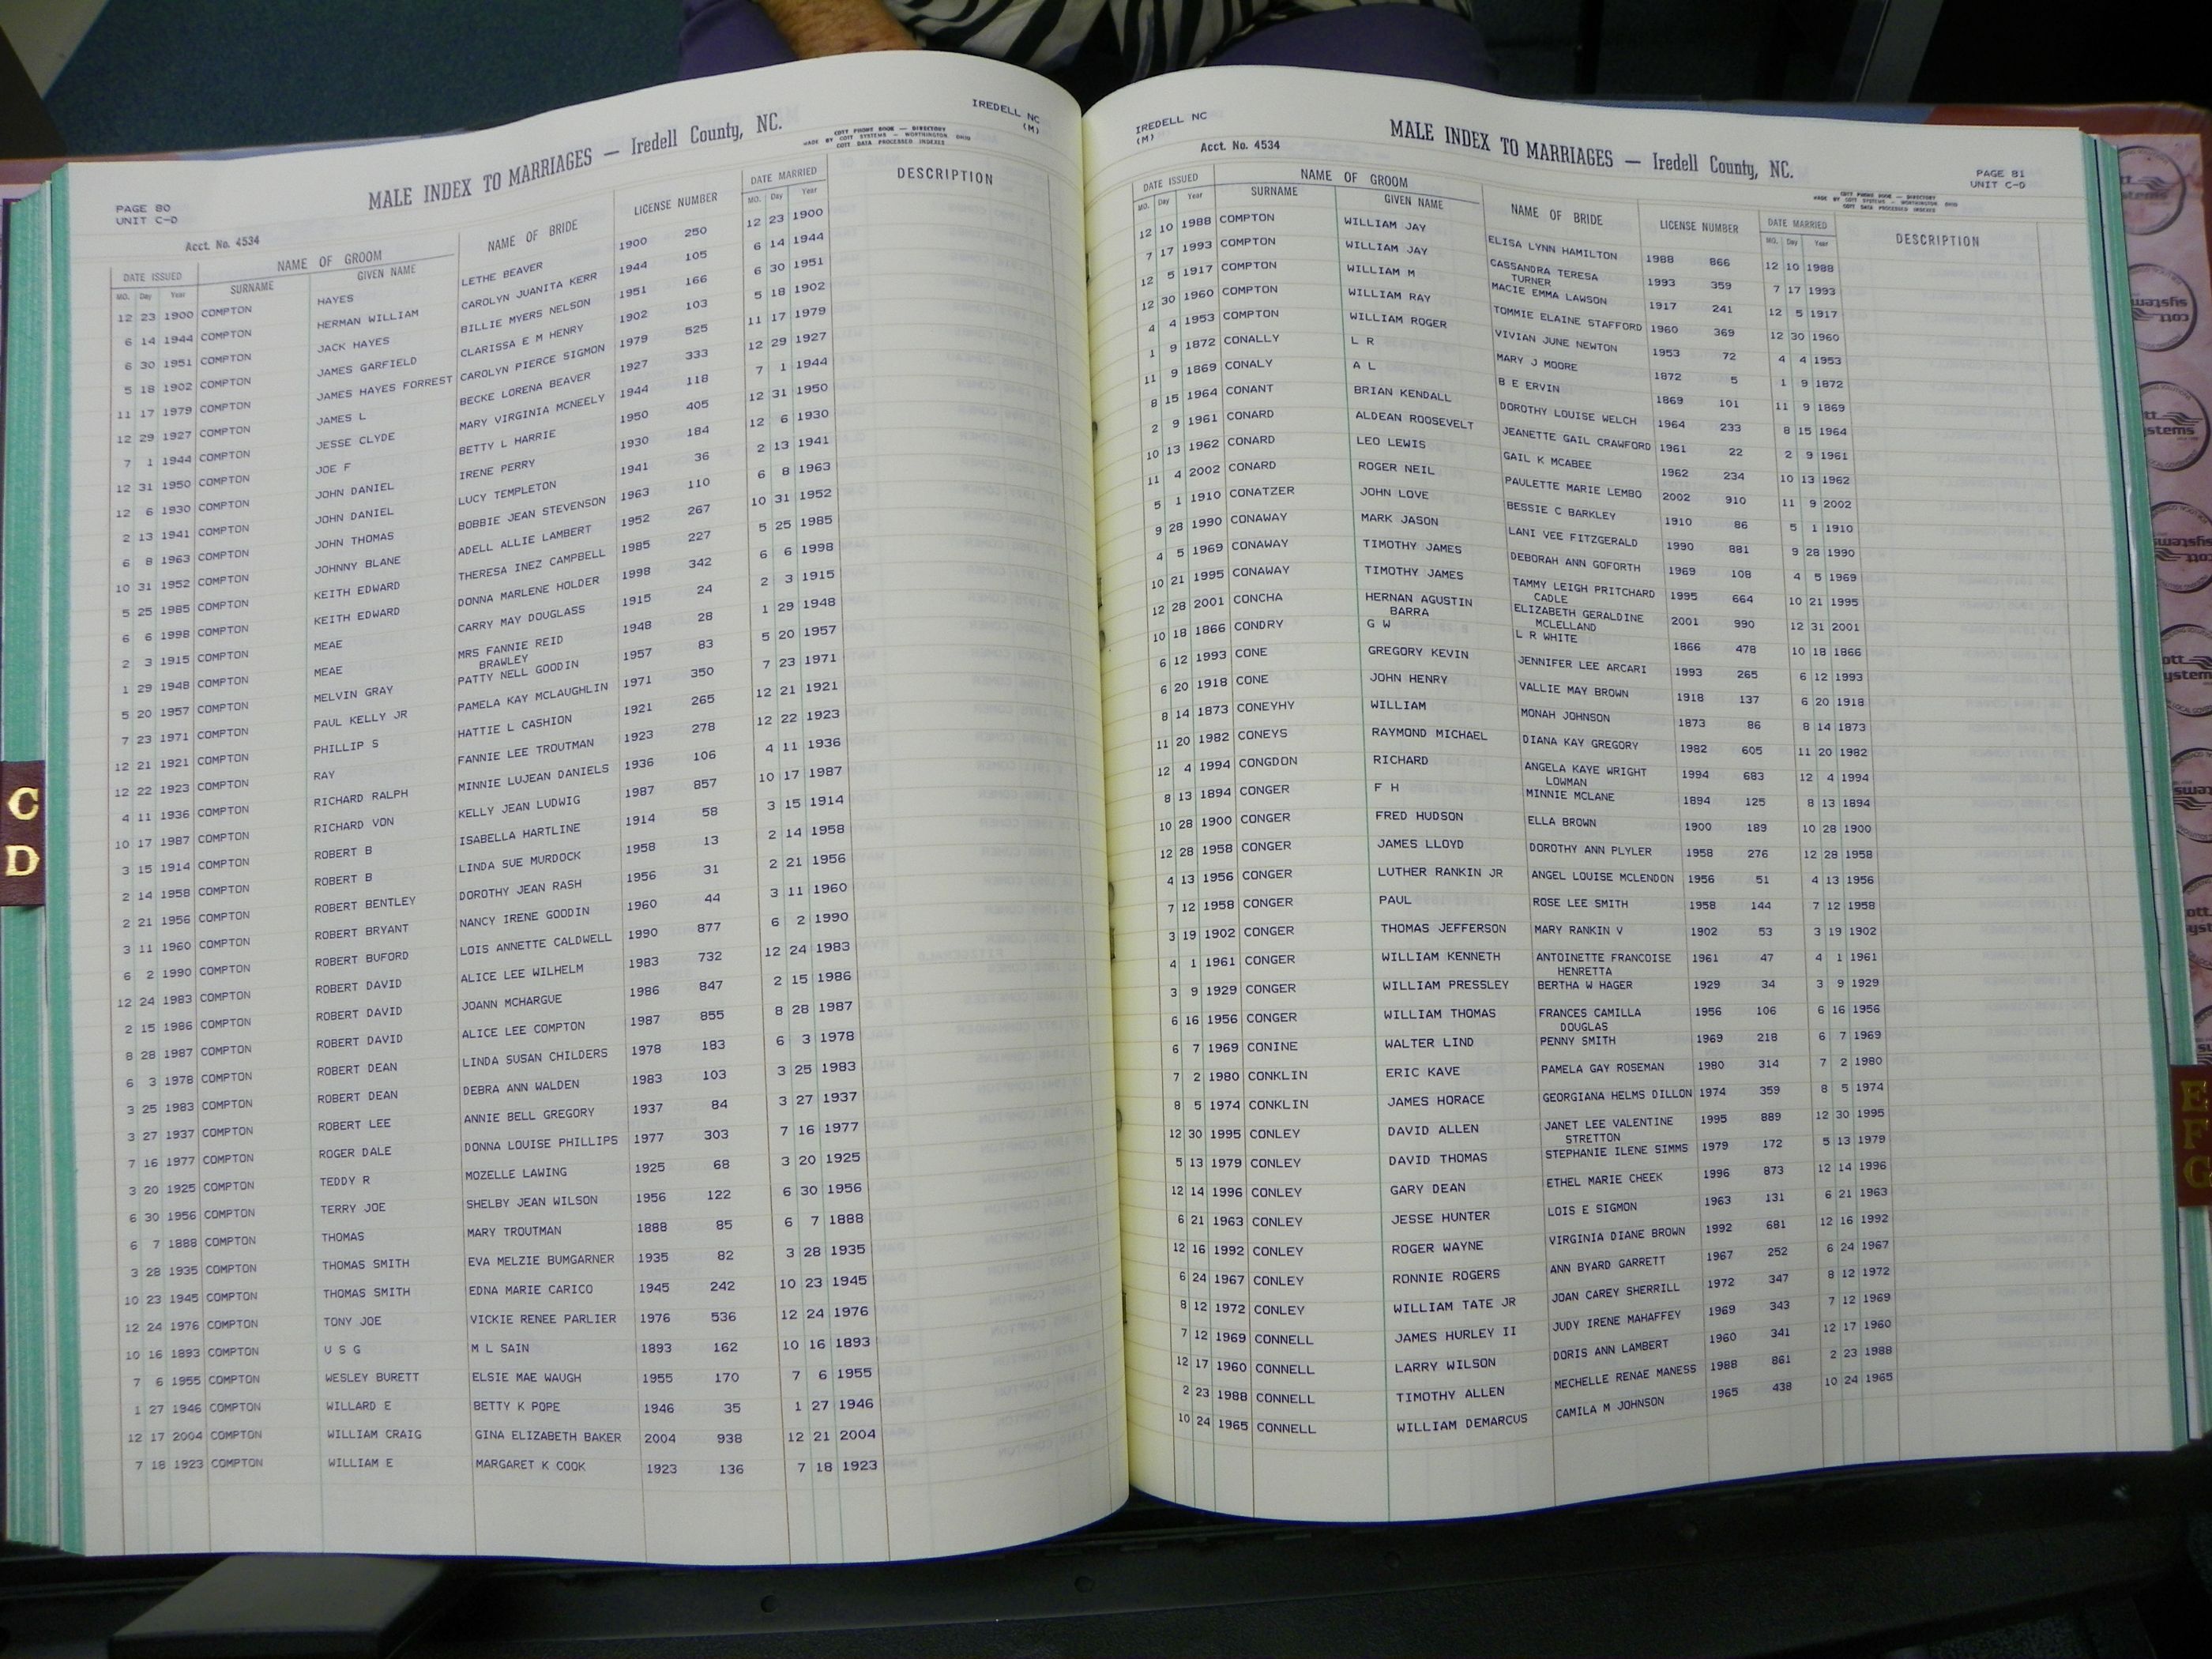 IREDELL NC
(M)
MALE INDEX TO MARRIAGES — Iredell County, NC.
COTT PHONE BOOK — DIRECTORY
MADE BY COTT SYSTEMS — WORTHINGTON OHIO
COTT DATA PROCESSED INDEXES
PAGE 80
UNIT C-D
Acct. No. 4534
DATE ISSUED NAME OF GROOM NAME OF BRIDE LICENSE NUMBER DATE MARRIED DESCRIPTION
MO. Day Year SURNAME GIVEN NAME MO. Day Year
12 23 1900 COMPTON HAYES LETHE BEAVER 1900 250 12 23 1900
6 14 1944 COMPTON HERMAN WILLIAM CAROLYN JUANITA KERR 1944 105 6 14 1944
6 30 1951 COMPTON JACK HAYES BILLIE MYERS NELSON 1951 166 6 30 1951
5 18 1902 COMPTON JAMES GARFIELD CLARISSA E M HENRY 1902 103 5 18 1902
11 17 1979 COMPTON JAMES HAYES FORREST CAROLYN PIERCE SIGMON 1979 525 11 17 1979
12 29 1927 COMPTON JAMES L BECKE LORENA BEAVER 1927 333 12 29 1927
7 1 1944 COMPTON JESSE CLYDE MARY VIRGINIA MCNEELY 1944 118 7 1 1944
12 31 1950 COMPTON JOE F BETTY L HARRIE 1950 405 12 31 1950
12 6 1930 COMPTON JOHN DANIEL IRENE PERRY 1930 184 12 6 1930
2 13 1941 COMPTON JOHN DANIEL LUCY TEMPLETON 1941 36 2 13 1941
6 8 1963 COMPTON JOHN THOMAS BOBBIE JEAN STEVENSON 1963 110 6 8 1963
10 31 1952 COMPTON JOHNNY BLANE ADELL ALLIE LAMBERT 1952 267 10 31 1952
5 25 1985 COMPTON KEITH EDWARD THERESA INEZ CAMPBELL 1985 227 5 25 1985
6 6 1998 COMPTON KEITH EDWARD DONNA MARLENE HOLDER 1998 342 6 6 1998
2 3 1915 COMPTON MEAE CARRY MAY DOUGLASS 1915 24 2 3 1915
1 29 1948 COMPTON MEAE MRS FANNIE REID 1948 28 1 29 1948
BRAWLEY
5 20 1957 COMPTON MELVIN GRAY PATTY NELL GOODIN 1957 83 5 20 1957
7 23 1971 COMPTON PAUL KELLY JR PAMELA KAY MCLAUGHLIN 1971 350 7 23 1971
12 21 1921 COMPTON PHILLIP S HATTIE L CASHION 1921 265 12 21 1921
12 22 1923 COMPTON RAY FANNIE LEE TROUTMAN 1923 278 12 22 1923
4 11 1936 COMPTON RICHARD RALPH MINNIE LUJEAN DANIELS 1936 106 4 11 1936
10 17 1987 COMPTON RICHARD VON KELLY JEAN LUDWIG 1987 857 10 17 1987
3 15 1914 COMPTON ROBERT B ISABELLA HARTLINE 1914 58 3 15 1914
2 14 1958 COMPTON ROBERT B LINDA SUE MURDOCK 1958 13 2 14 1958
2 21 1956 COMPTON ROBERT BENTLEY DOROTHY JEAN RASH 1956 31 2 21 1956
3 11 1960 COMPTON ROBERT BRYANT NANCY IRENE GOODIN 1960 44 3 11 1960
6 2 1990 COMPTON ROBERT BUFORD LOIS ANNETTE CALDWELL 1990 877 6 2 1990
12 24 1983 COMPTON ROBERT DAVID ALICE LEE WILHELM 1983 732 12 24 1983
2 15 1986 COMPTON ROBERT DAVID JOANN MCHARGUE 1986 847 2 15 1986
8 28 1987 COMPTON ROBERT DAVID ALICE LEE COMPTON 1987 855 8 28 1987
6 3 1978 COMPTON ROBERT DEAN LINDA SUSAN CHILDERS 1978 183 6 3 1978
3 25 1983 COMPTON ROBERT DEAN DEBRA ANN WALDEN 1983 103 3 25 1983
3 27 1937 COMPTON ROBERT LEE ANNIE BELL GREGORY 1937 84 3 27 1937
7 16 1977 COMPTON ROGER DALE DONNA LOUISE PHILLIPS 1977 303 7 16 1977
3 20 1925 COMPTON TEDDY R MOZELLE LAWING 1925 68 3 20 1925
6 30 1956 COMPTON TERRY JOE SHELBY JEAN WILSON 1956 122 6 30 1956
6 7 1888 COMPTON THOMAS MARY TROUTMAN 1888 85 6 7 1888
3 28 1935 COMPTON THOMAS SMITH EVA MELZIE BUMGARNER 1935 82 3 28 1935
10 23 1945 COMPTON THOMAS SMITH EDNA MARIE CARICO 1945 242 10 23 1945
12 24 1976 COMPTON TONY JOE VICKIE RENEE PARLIER 1976 536 12 24 1976
10 16 1893 COMPTON U S G M L SAIN 1893 162 10 16 1893
7 6 1955 COMPTON WESLEY BURETT ELSIE MAE WAUGH 1955 170 7 6 1955
1 27 1946 COMPTON WILLARD E BETTY K POPE 1946 35 1 27 1946
12 17 2004 COMPTON WILLIAM CRAIG GINA ELIZABETH BAKER 2004 938 12 21 2004
7 18 1923 COMPTON WILLIAM E MARGARET K COOK 1923 136 7 18 1923
C
D
IREDELL NC
(M)
Acct. No. 4534
MALE INDEX TO MARRIAGES — Iredell County, NC.
PAGE 81
UNIT C-D
COTT PHONE BOOK — DIRECTORY
MADE BY COTT SYSTEMS — WORTHINGTON OHIO
COTT DATA PROCESSED INDEXES
DATE ISSUED NAME OF GROOM NAME OF BRIDE LICENSE NUMBER DATE MARRIED DESCRIPTION
MO. Day Year SURNAME GIVEN NAME MO. Day Year
12 10 1988 COMPTON WILLIAM JAY ELISA LYNN HAMILTON 1988 866 12 10 1988
7 17 1993 COMPTON WILLIAM JAY CASSANDRA TERESA 1993 359 7 17 1993
TURNER
12 5 1917 COMPTON WILLIAM M MACIE EMMA LAWSON 1917 241 12 5 1917
12 30 1960 COMPTON WILLIAM RAY TOMMIE ELAINE STAFFORD 1960 369 12 30 1960
4 4 1953 COMPTON WILLIAM ROGER VIVIAN JUNE NEWTON 1953 72 4 4 1953
1 9 1872 CONALLY L R MARY J MOORE 1872 5 1 9 1872
11 9 1869 CONALY A L B E ERVIN 1869 101 11 9 1869
8 15 1964 CONANT BRIAN KENDALL DOROTHY LOUISE WELCH 1964 233 8 15 1964
2 9 1961 CONARD ALDEAN ROOSEVELT JEANETTE GAIL CRAWFORD 1961 22 2 9 1961
10 13 1962 CONARD LEO LEWIS GAIL K MCABEE 1962 234 10 13 1962
11 4 2002 CONARD ROGER NEIL PAULETTE MARIE LEMBO 2002 910 11 9 2002
5 1 1910 CONATZER JOHN LOVE BESSIE C BARKLEY 1910 86 5 1 1910
9 28 1990 CONAWAY MARK JASON LANI VEE FITZGERALD 1990 881 9 28 1990
4 5 1969 CONAWAY TIMOTHY JAMES DEBORAH ANN GOFORTH 1969 108 4 5 1969
10 21 1995 CONAWAY TIMOTHY JAMES TAMMY LEIGH PRITCHARD 1995 664 10 21 1995
CADLE
12 28 2001 CONCHA HERNAN AGUSTIN ELIZABETH GERALDINE 2001 990 12 31 2001
BARRA MCLELLAND
10 18 1866 CONDRY G W L R WHITE 1866 478 10 18 1866
6 12 1993 CONE GREGORY KEVIN JENNIFER LEE ARCARI 1993 265 6 12 1993
6 20 1918 CONE JOHN HENRY VALLIE MAY BROWN 1918 137 6 20 1918
8 14 1873 CONEYHY WILLIAM MONAH JOHNSON 1873 86 8 14 1873
11 20 1982 CONEYS RAYMOND MICHAEL DIANA KAY GREGORY 1982 605 11 20 1982
12 4 1994 CONGDON RICHARD ANGELA KAYE WRIGHT 1994 683 12 4 1994
LOWMAN
8 13 1894 CONGER F H MINNIE MCLANE 1894 125 8 13 1894
10 28 1900 CONGER FRED HUDSON ELLA BROWN 1900 189 10 28 1900
12 28 1958 CONGER JAMES LLOYD DOROTHY ANN PLYLER 1958 276 12 28 1958
4 13 1956 CONGER LUTHER RANKIN JR ANGEL LOUISE MCLENDON 1956 51 4 13 1956
7 12 1958 CONGER PAUL ROSE LEE SMITH 1958 144 7 12 1958
3 19 1902 CONGER THOMAS JEFFERSON MARY RANKIN V 1902 53 3 19 1902
4 1 1961 CONGER WILLIAM KENNETH ANTOINETTE FRANCOISE 1961 47 4 1 1961
HENRETTA
3 9 1929 CONGER WILLIAM PRESSLEY BERTHA W HAGER 1929 34 3 9 1929
6 16 1956 CONGER WILLIAM THOMAS FRANCES CAMILLA 1956 106 6 16 1956
DOUGLAS
6 7 1969 CONINE WALTER LIND PENNY SMITH 1969 218 6 7 1969
7 2 1980 CONKLIN ERIC KAVE PAMELA GAY ROSEMAN 1980 314 7 2 1980
8 5 1974 CONKLIN JAMES HORACE GEORGIANA HELMS DILLON 1974 359 8 5 1974
12 30 1995 CONLEY DAVID ALLEN JANET LEE VALENTINE 1995 889 12 30 1995
STRETTON
5 13 1979 CONLEY DAVID THOMAS STEPHANIE ILENE SIMMS 1979 172 5 13 1979
12 14 1996 CONLEY GARY DEAN ETHEL MARIE CHEEK 1996 873 12 14 1996
6 21 1963 CONLEY JESSE HUNTER LOIS E SIGMON 1963 131 6 21 1963
12 16 1992 CONLEY ROGER WAYNE VIRGINIA DIANE BROWN 1992 681 12 16 1992
6 24 1967 CONLEY RONNIE ROGERS ANN BYARD GARRETT 1967 252 6 24 1967
8 12 1972 CONLEY WILLIAM TATE JR JOAN CAREY SHERRILL 1972 347 8 12 1972
7 12 1969 CONNELL JAMES HURLEY II JUDY IRENE MAHAFFEY 1969 343 7 12 1969
12 17 1960 CONNELL LARRY WILSON DORIS ANN LAMBERT 1960 341 12 17 1960
2 23 1988 CONNELL TIMOTHY ALLEN MECHELLE RENAE MANESS 1988 861 2 23 1988
10 24 1965 CONNELL WILLIAM DEMARCUS CAMILA M JOHNSON 1965 438 10 24 1965
E
F
G